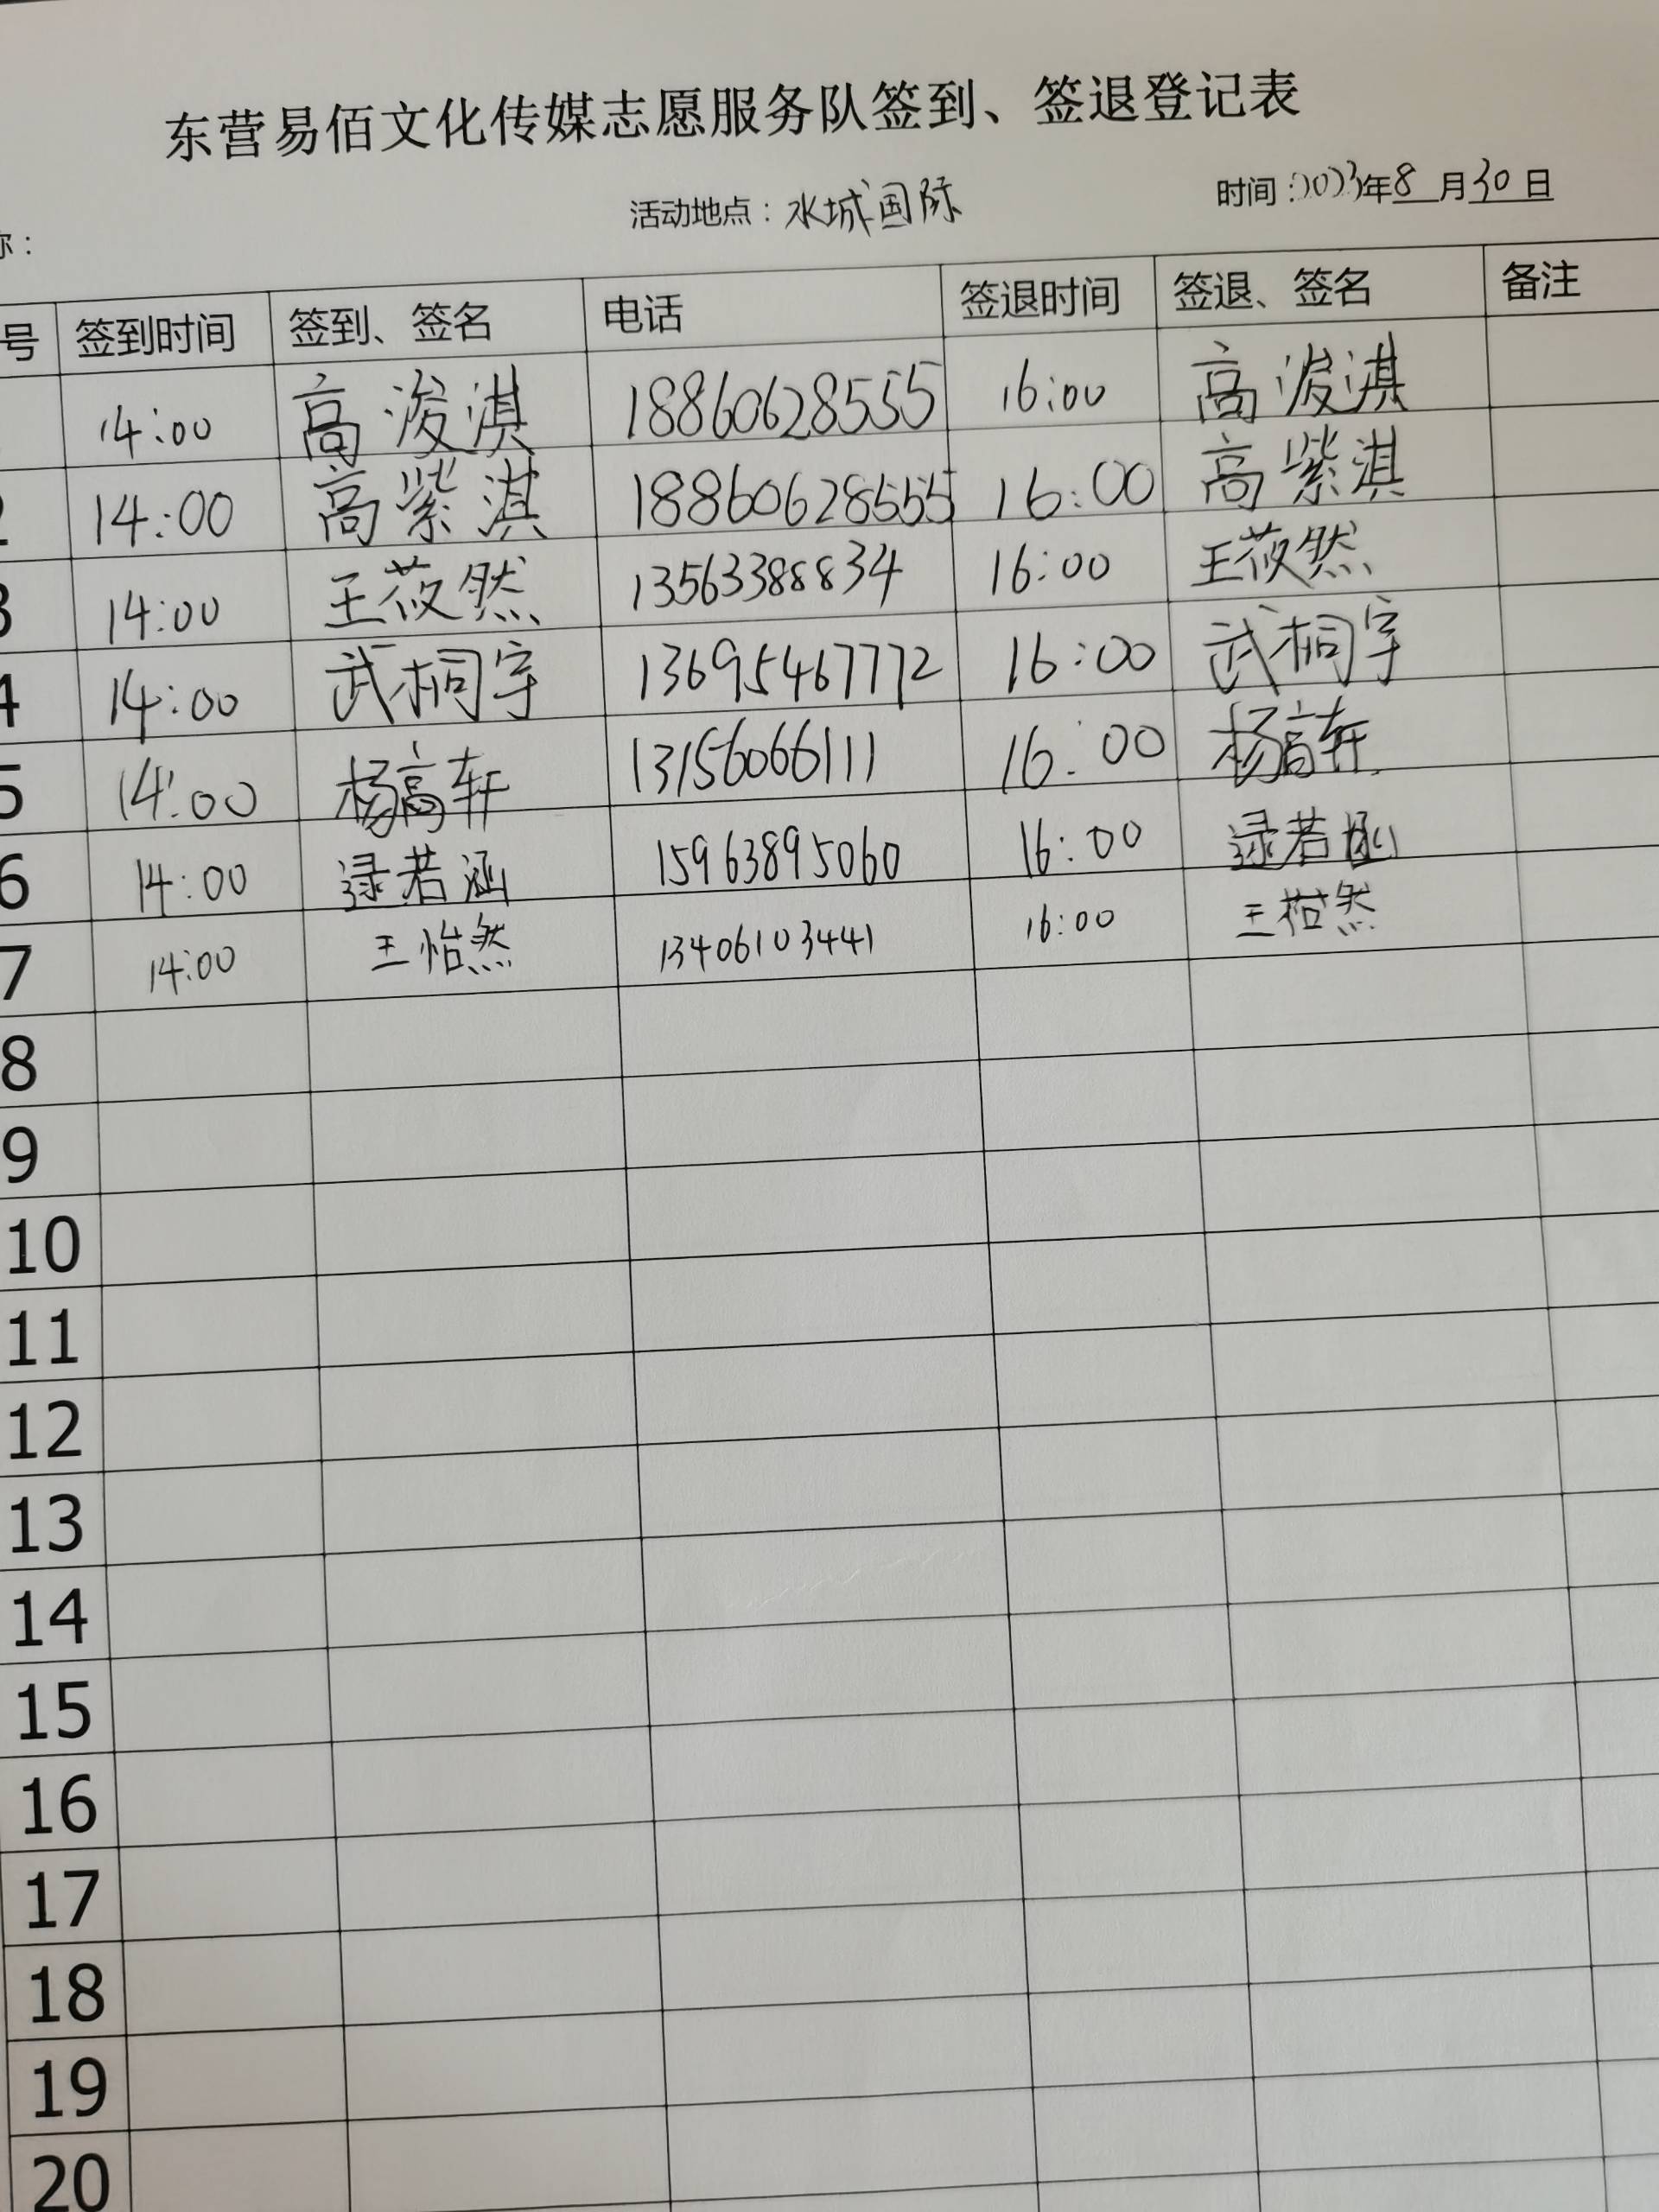 东营易佰文化传媒志愿服务队签到、签退登记表
活动地点：水城国际 时间：2023年8月30日
称：
号 签到时间 签到、签名 电话 签退时间 签退、签名 备注
14:00 高浚淇 18860628555 16:00 高浚淇
2 14:00 高紫淇 18860628555 16:00 高紫淇
3 14:00 王莜然 13563388834 16:00 王莜然
4 14:00 武桐宇 13695467772 16:00 武桐宇
5 14:00 杨高轩 13156066111 16:00 杨高轩
6 14:00 逯若涵 15963895060 16:00 逯若涵
7 14:00 王怡然 13406103441 16:00 王怡然
8
9
10
11
12
13
14
15
16
17
18
19
20